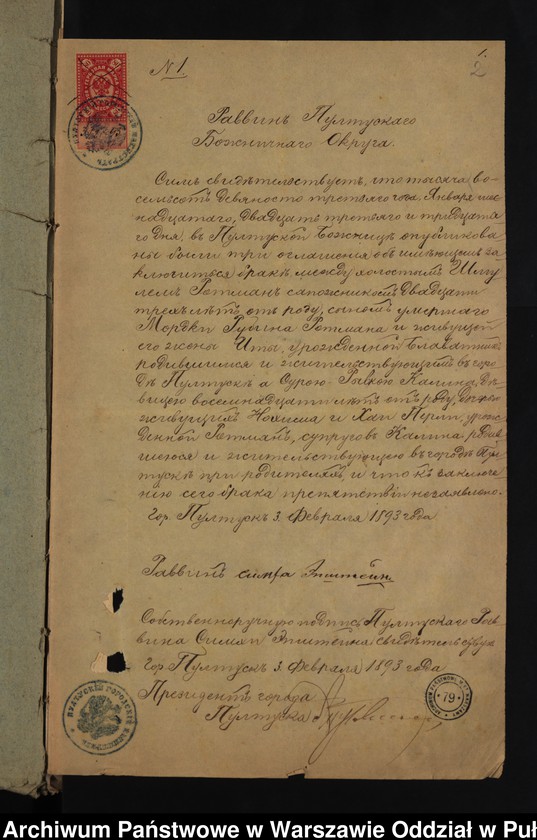 № 1.
1.
2
Раввинъ Пултускаго
Божничнаго Округа.
Симъ свидѣтельствуетъ, что тысяча во-
семьсотъ девяносто третьяго года, Января шес
надцатаго, двадцать третьяго и тридцата
го дня, въ Пултуской Божницѣ опубликова
ны были три оглашенія объ имѣющемъ за
ключиться бракѣ между холостымъ
лемъ Ротманъ сапожникомъ двадцати
трехъ лѣтъ отъ роду, сыномъ умершаго
Мордки Рубина Ротмана и живущей
его жены Иты, урожденной
родившимся и жительствующимъ въ горо
дѣ Пултускѣ а Сурою Рывкою Калина, дѣ
вицею восемнадцати лѣтъ отъ роду, дочерью
живущихъ и Хаи Перли, урож
денной Ротманъ, супруговъ Калина родив
шеюся и жительствующею въ городѣ Пул
тускѣ при родителяхъ, и что къ заключе
нію сего брака препятствій незаявлено.
Гор. Пултускъ 3 Февраля 1893 года
Раввинъ Симха Эпштейн
Собственноручную подпись Пултускаго Рав
вина Симхи Эпштейна свидѣтельствую
Гор. Пултускъ 3 Февраля 1893 года
Президентъ города
Пултуска
ПУЛТУСКІЙ ГОРОДСКІЙ МАГИСТРАТЪ
79
Archiwum Państwowe w Warszawie Oddział w Puł